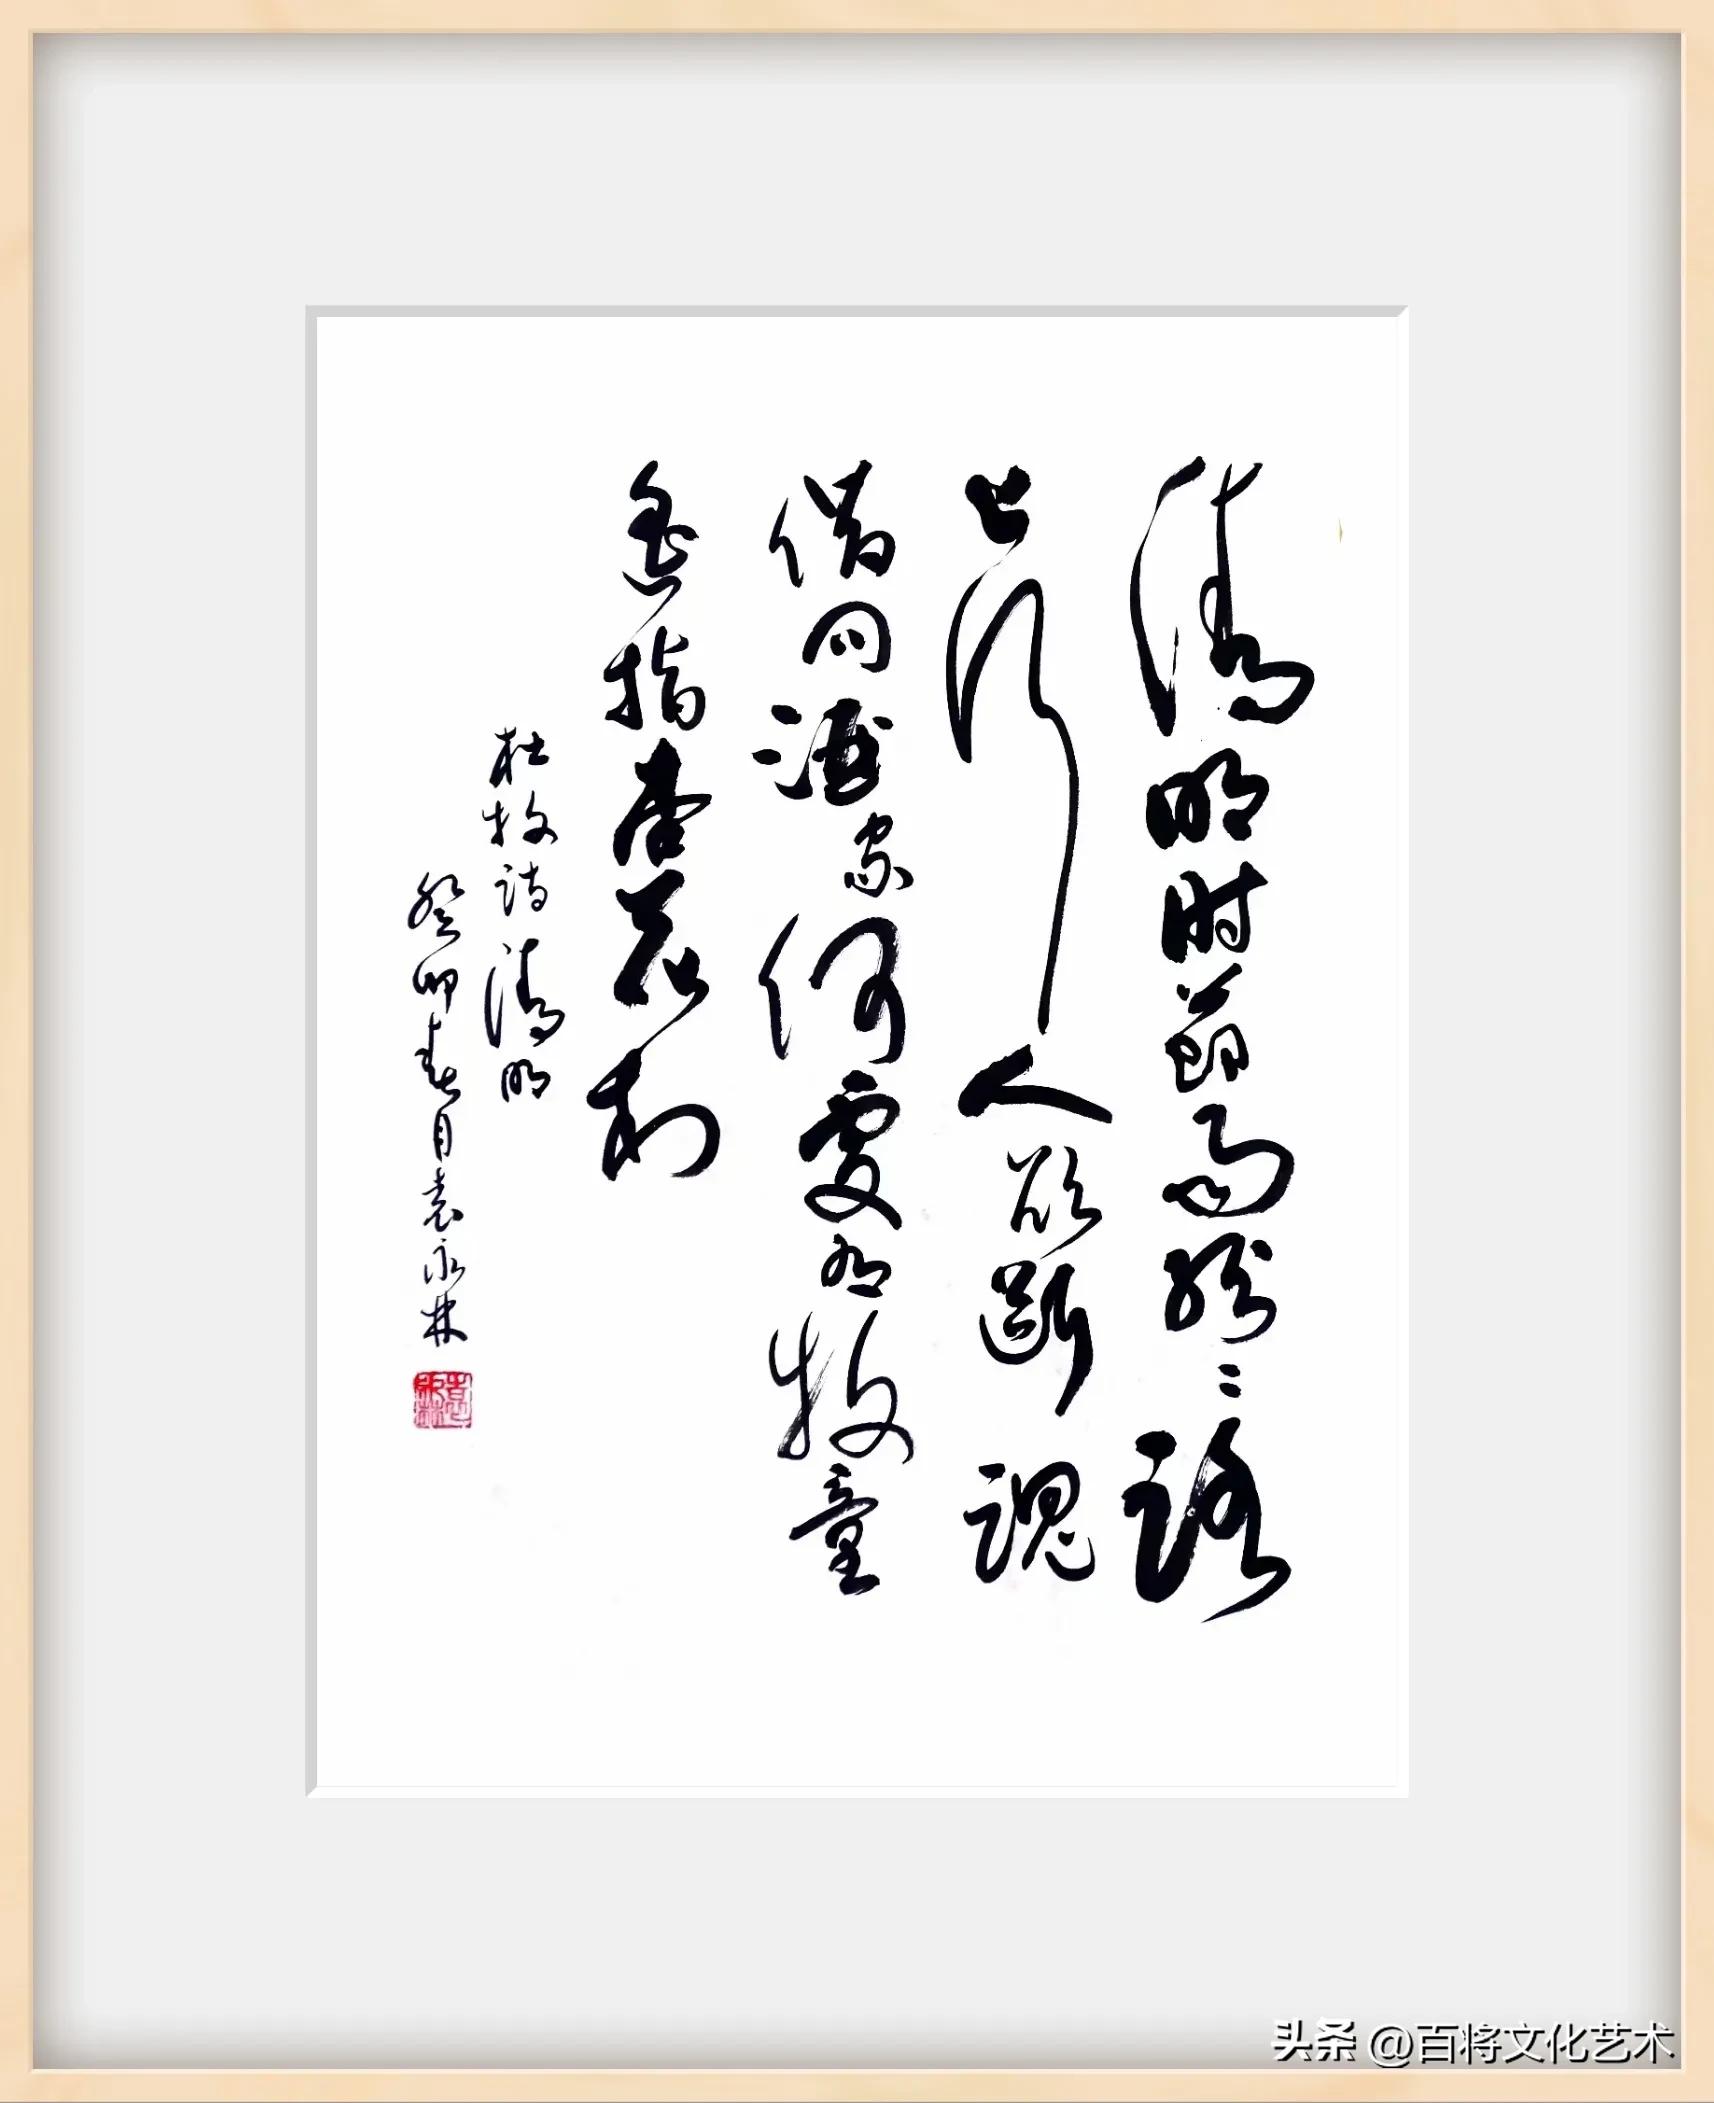 清明时節雨紛〻路
上行人欲斷魂
借问酒家何處有牧童
遥指杏花村
杜牧诗清明
癸卯春月袁永林
头条 @百将文化艺术